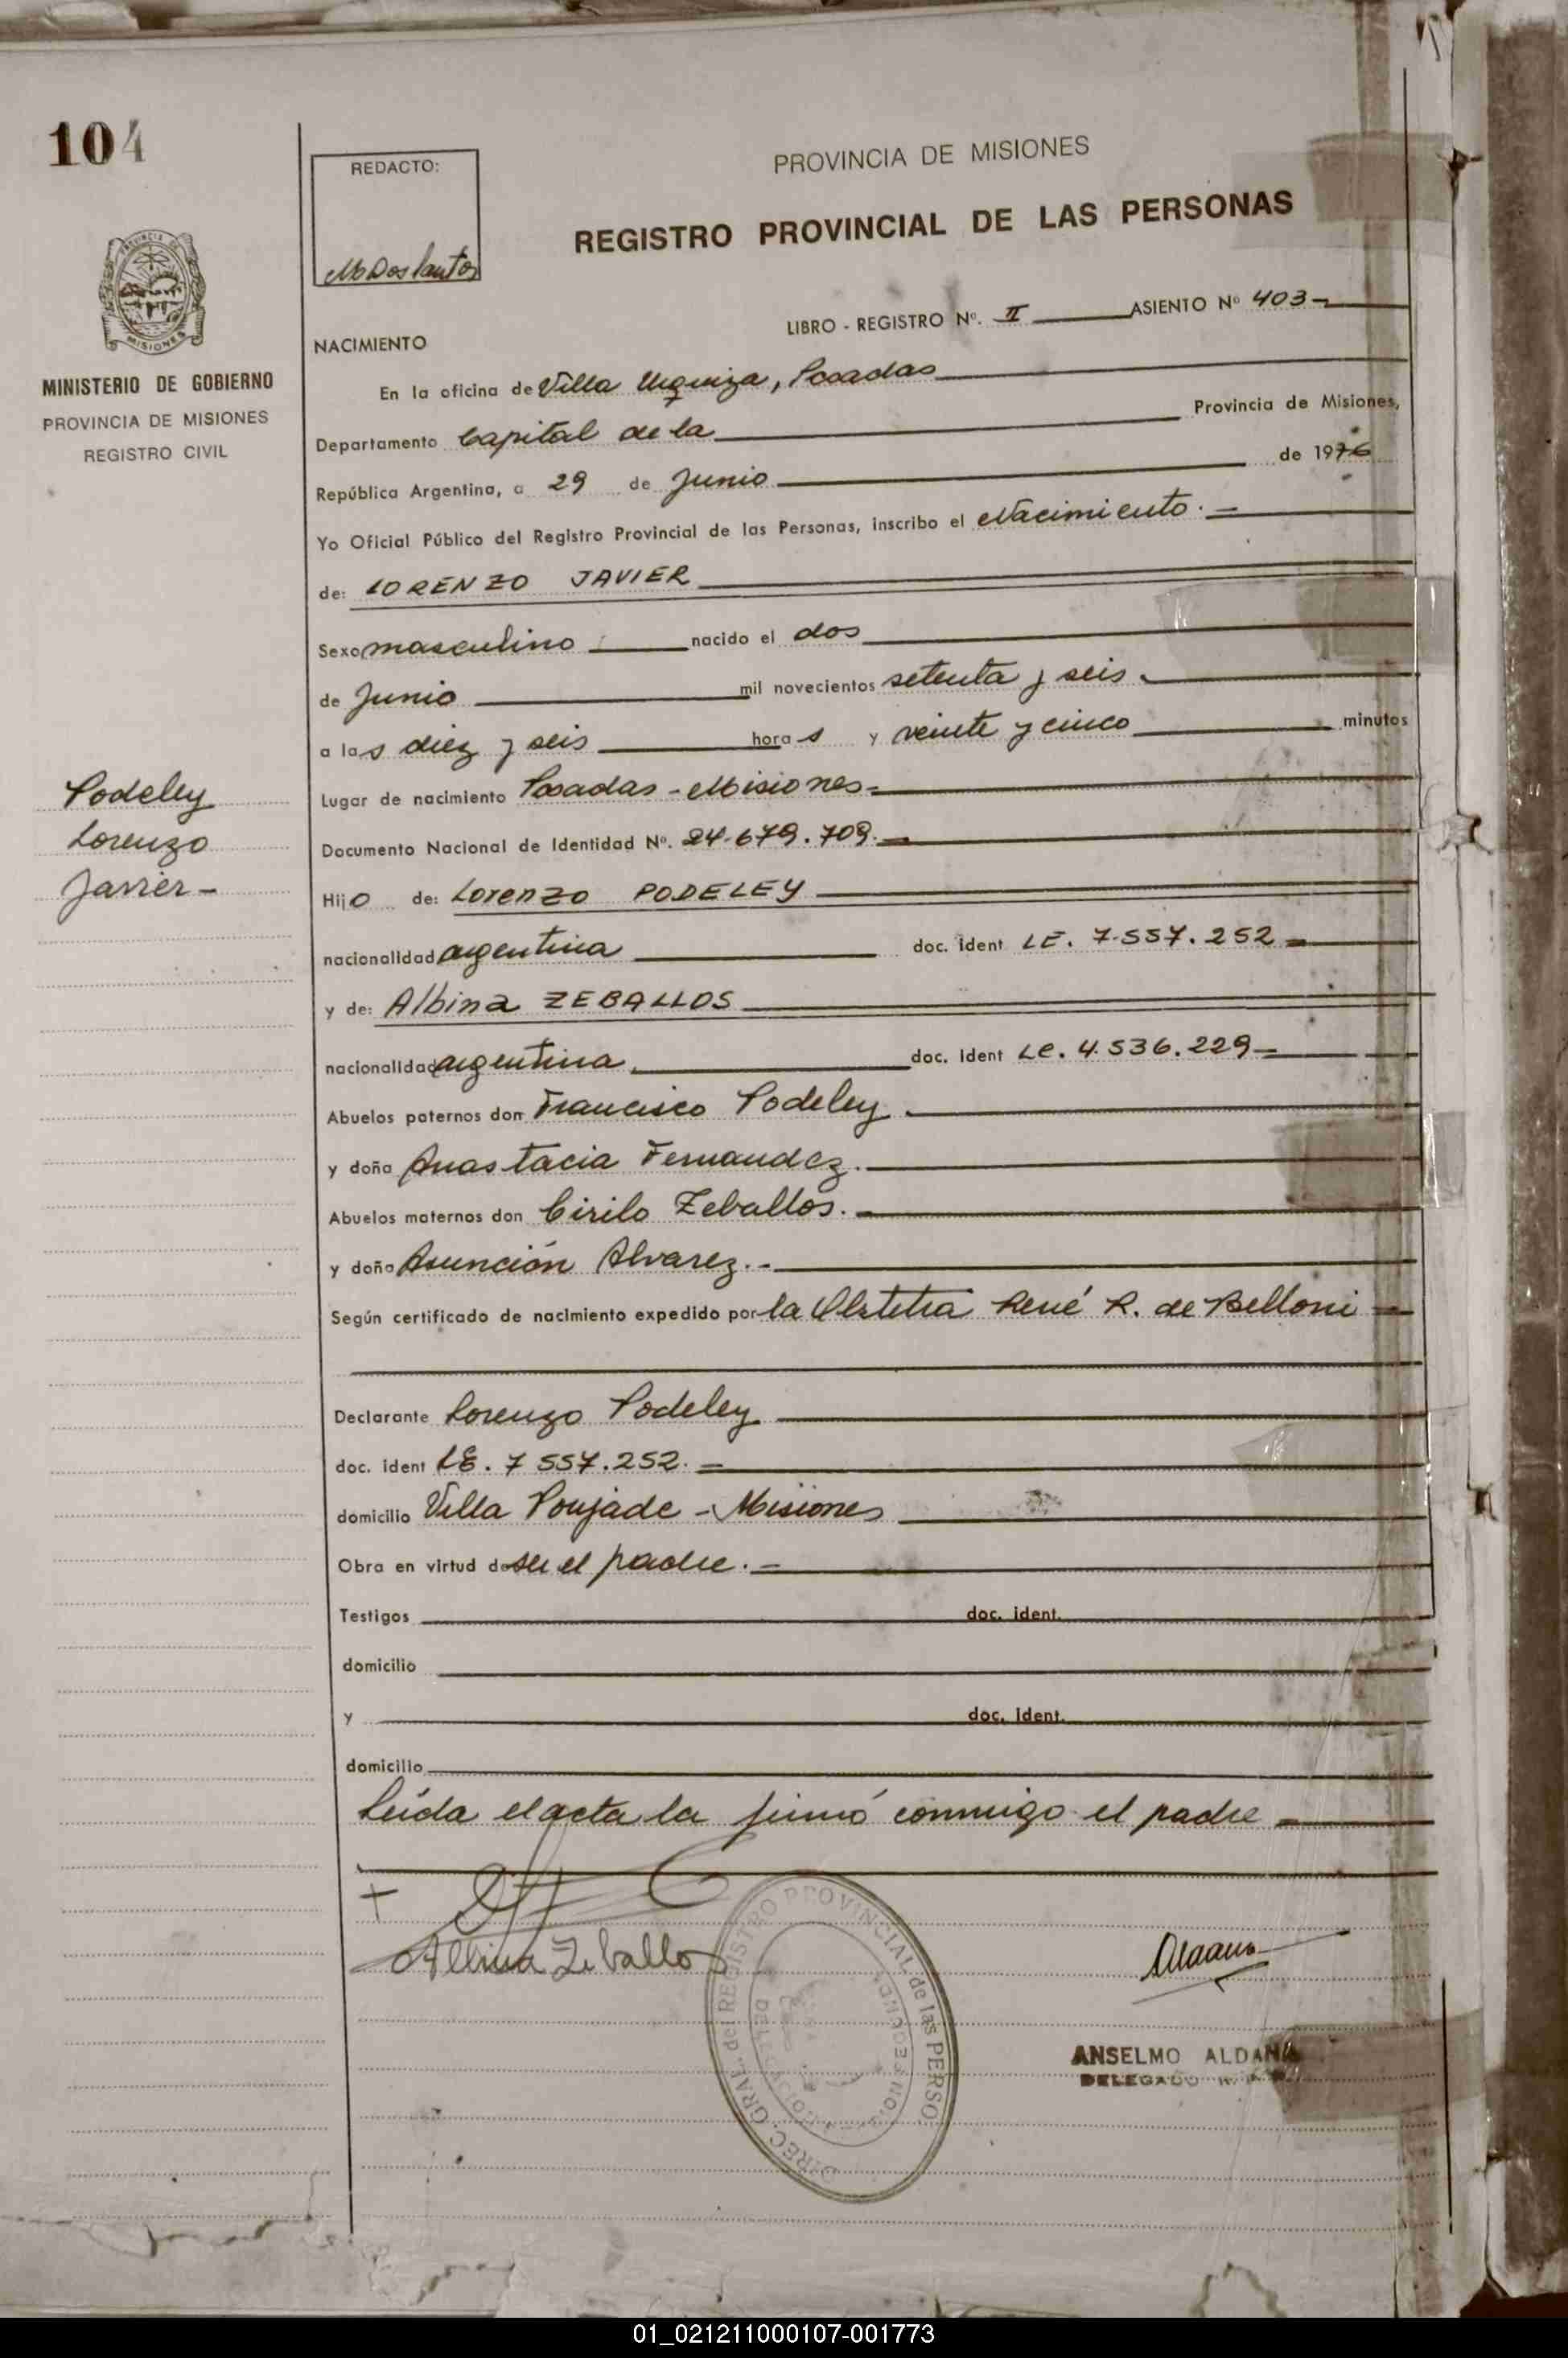 104
REDACTO:
M Dos Santos
PROVINCIA DE MISIONES
REGISTRO PROVINCIAL DE LAS PERSONAS
PROVINCIA DE
MISIONES
MINISTERIO DE GOBIERNO
PROVINCIA DE MISIONES
REGISTRO CIVIL
LIBRO - REGISTRO Nº. II ASIENTO Nº 403-
NACIMIENTO
En la oficina de Villa Urquiza, Posadas
Departamento Capital de la Provincia de Misiones,
República Argentina, a 29 de Junio de 1976
Yo Oficial Público del Registro Provincial de las Personas, inscribo el Nacimiento.-
de: LORENZO JAVIER
Sexo masculino nacido el dos
de Junio mil novecientos setenta y seis.
a las diez y seis horas y veinte y cinco minutos
Podeley
Lorenzo
Javier-
Lugar de nacimiento Posadas - Misiones-
Documento Nacional de Identidad Nº. 24.679.709.-
Hijo de: Lorenzo PODELEY
nacionalidad argentina doc. ident LE. 7.557.252-
y de: Albina ZEBALLOS
nacionalidad argentina doc. ident LC. 4.536.229-
Abuelos paternos don Francisco Podeley.
y doña Anastacia Fernandez.
Abuelos maternos don Cirilo Zeballos.-
y doña Asunción Alvarez.-
Según certificado de nacimiento expedido por la Obstetra René R. de Belloni -
Declarante Lorenzo Podeley
doc. ident LE. 7 557.252.-
domicilio Villa Poujade - Misiones
Obra en virtud de ser el padre.-
Testigos doc. ident.
domicilio
y doc. ident.
domicilio
Leída el acta la firmó conmigo el padre -
+
Albina Zeballos
DIREC. GRAL. del REGISTRO PROVINCIAL de las PERSO.
Aldana
ANSELMO ALDANA
DELEGADO
01_021211000107-001773